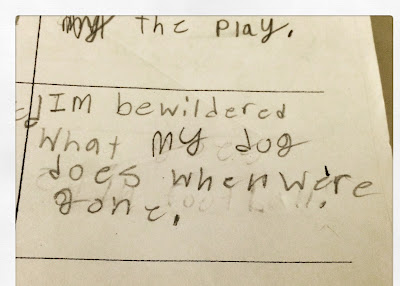 the play.
IM bewildered
What my dog
does when we're
gone.